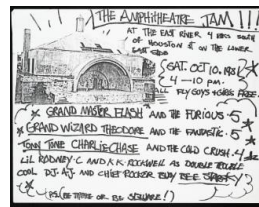 THE AMPHITHEATRE JAM!!!
AT THE EAST RIVER, 4 BLKS SOUTH
OF HOUSTON ST ON THE LOWER
EAST SIDE
SAT. OCT 10. 1981
4—10 PM.
ALL FLY GUYS + GIRLS FREE.
GRAND MASTER FLASH AND THE FURIOUS·5
GRAND WIZARD THEODORE AND THE FANTASTIC·5
TONY TONE CHARLIE CHASE AND THE COLD CRUSH·4
LIL RODNEY·C AND K.K. ROCKWELL AS DOUBLE TROUBLE
COOL DJ. AJ AND CHIEF ROCKER BUSY BEE
P.S. (BE THERE OR BE SQUARE!)